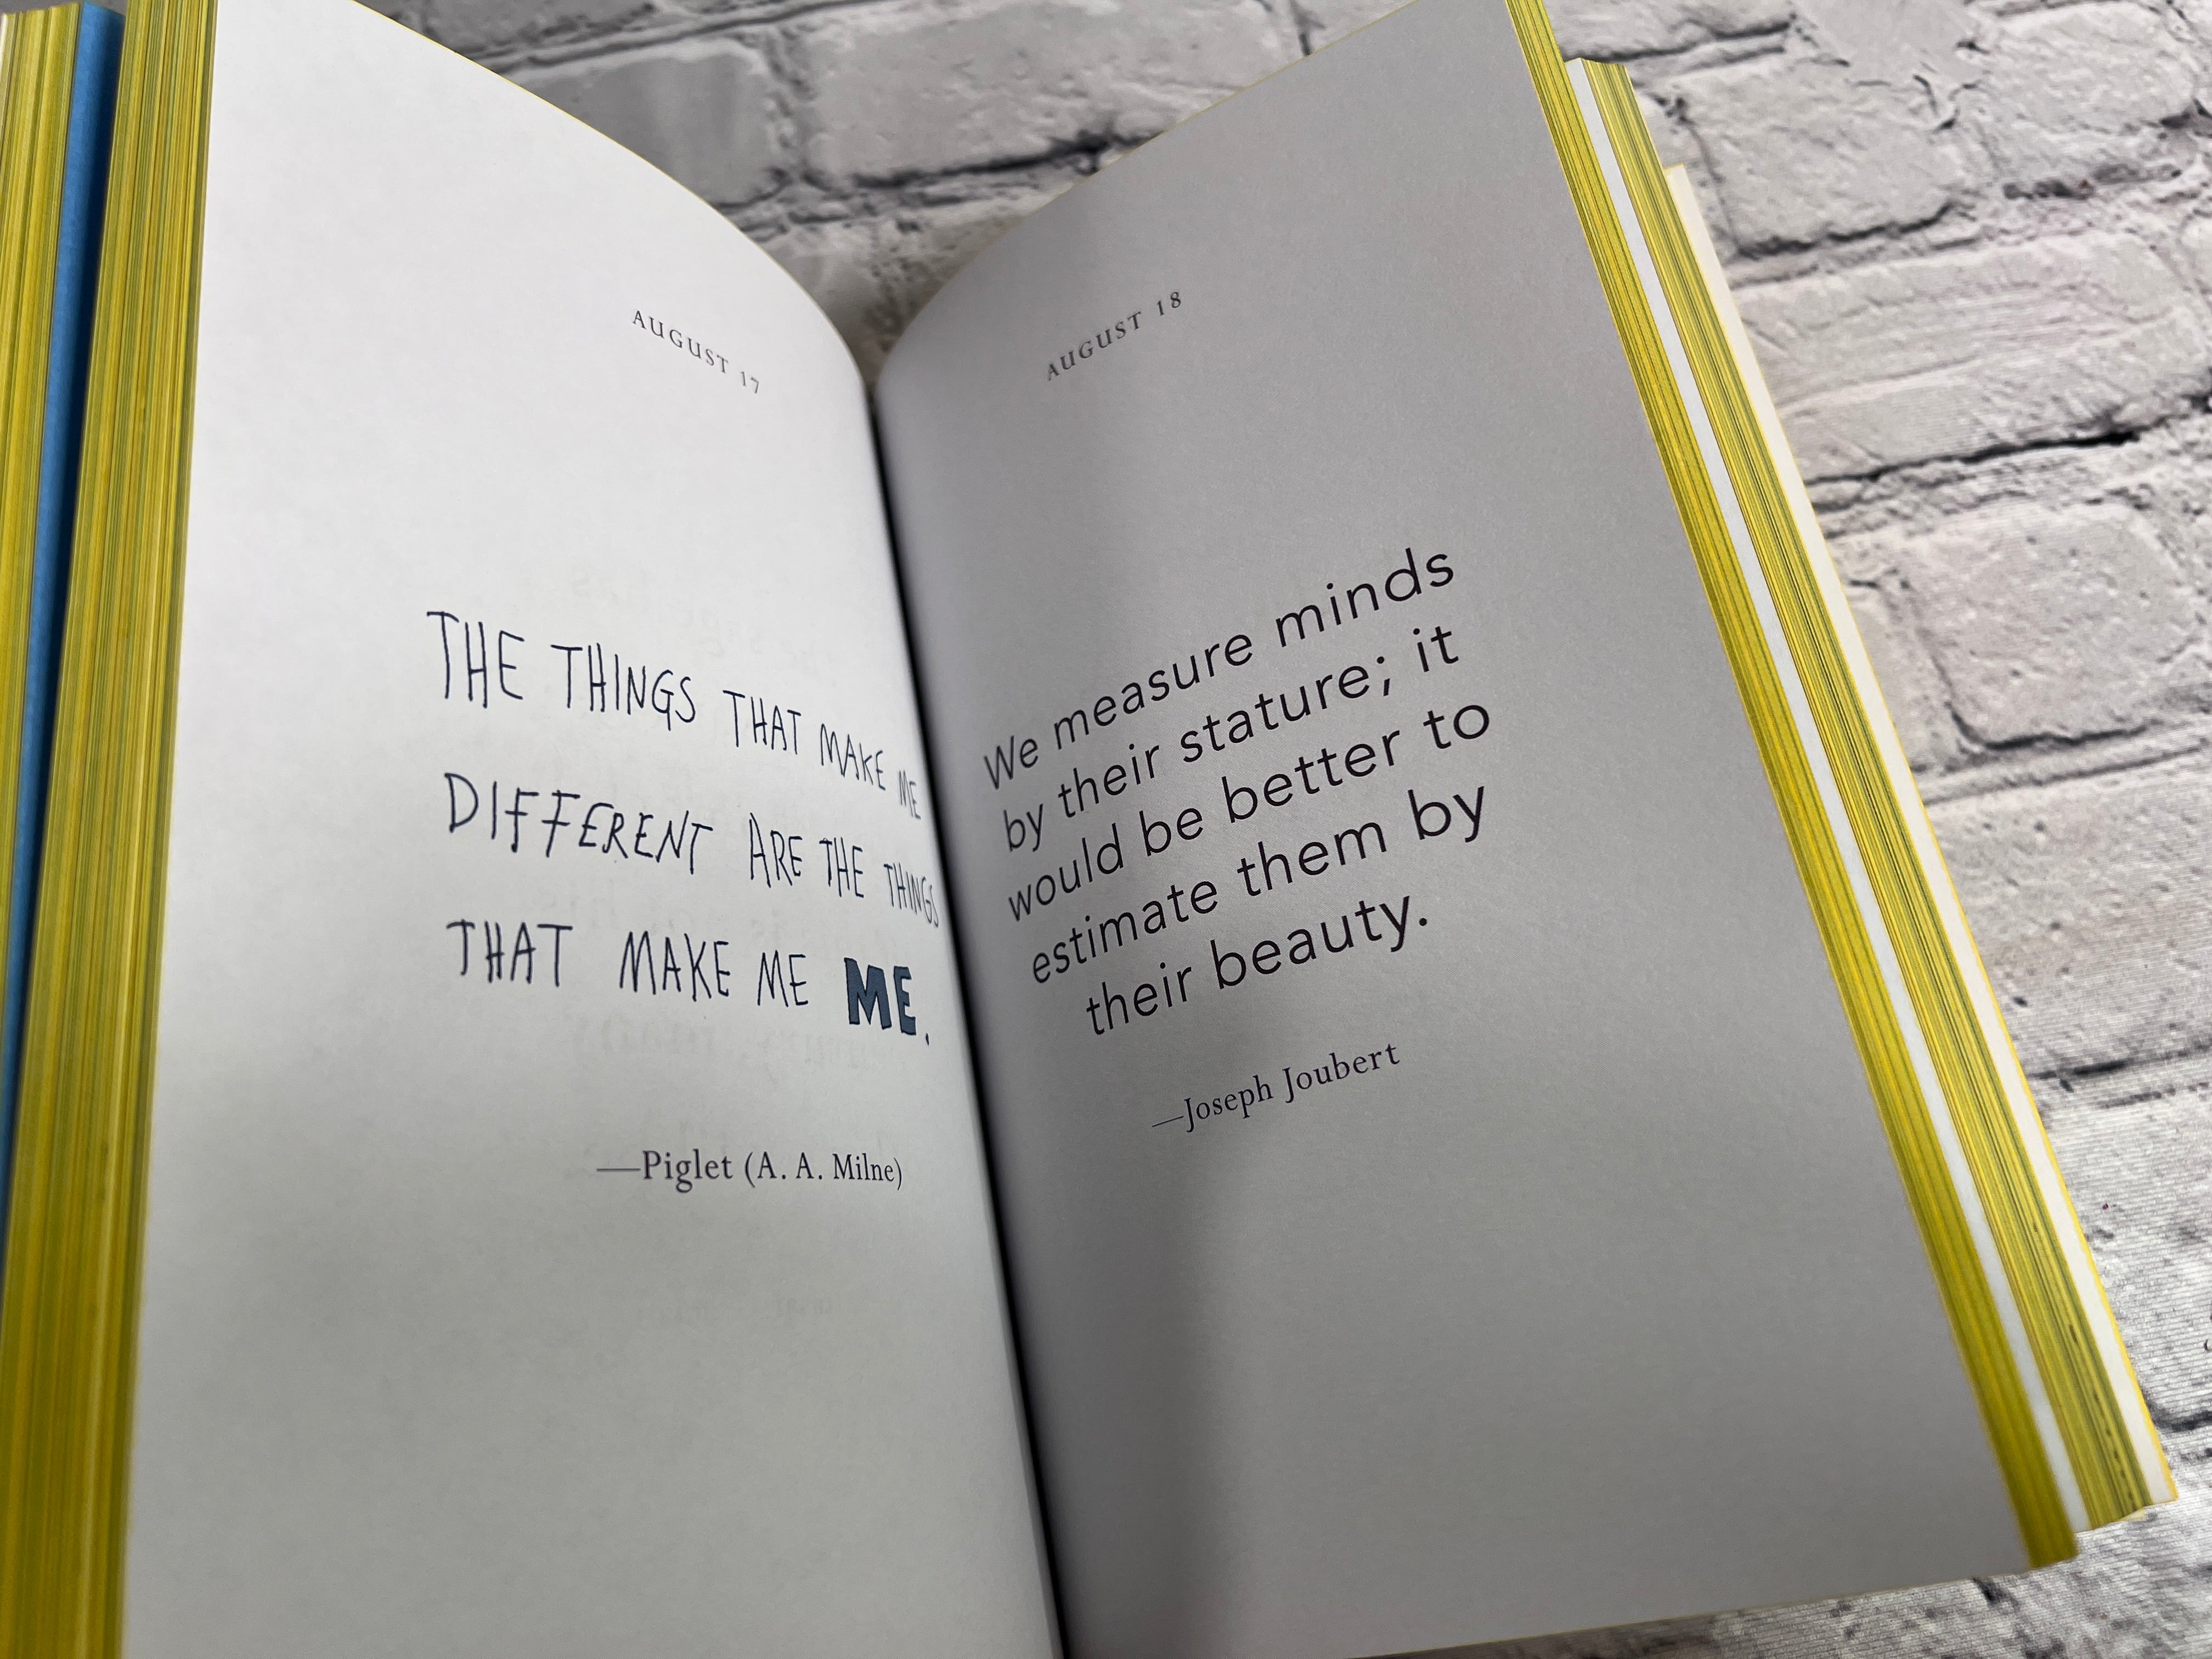 AUGUST 17
THE THINGS THAT MAKE ME
DIFFERENT ARE THE THINGS
THAT MAKE ME ME.
—Piglet (A. A. Milne)
AUGUST 18
We measure minds
by their stature; it
would be better to
estimate them by
their beauty.
—Joseph Joubert